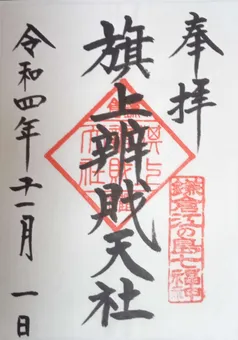 奉拝
旗上辨財天社
令和四年十一月一日
鎌倉江の島七福神